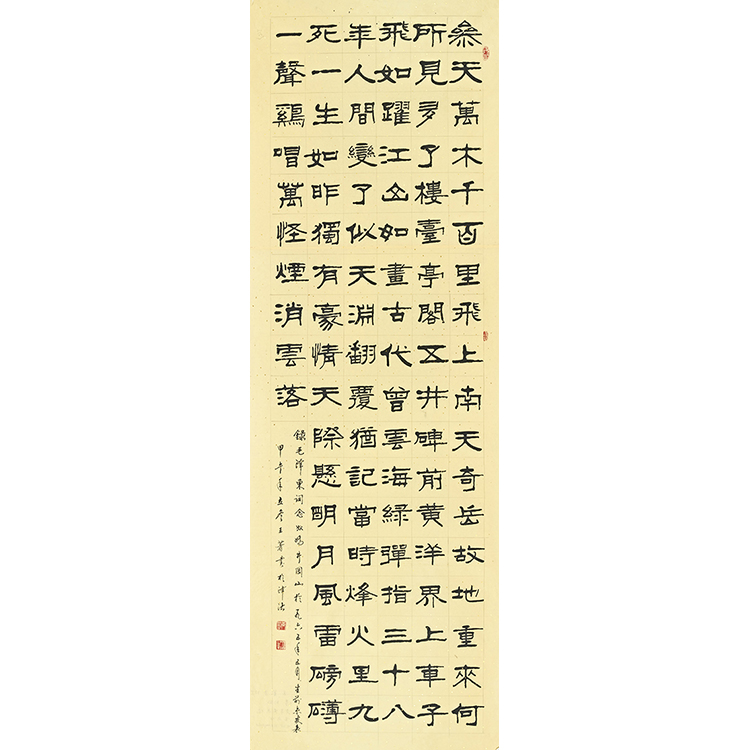 參天萬木千百里飛上南天奇岳故地重來何
所見多了樓臺亭閣五井碑前黃洋界上車子
飛如躍江山如畫古代曾雲海綠彈指三十八
年人間變了似天淵翻覆猶記當時烽火里九
死一生如昨獨有豪情天際懸明月風雷磅礴
一聲鷄唱萬怪煙消雲落
錄毛澤東詞念奴嬌井岡山於一九六五年五月生前未發表
甲年冬王書於津沽